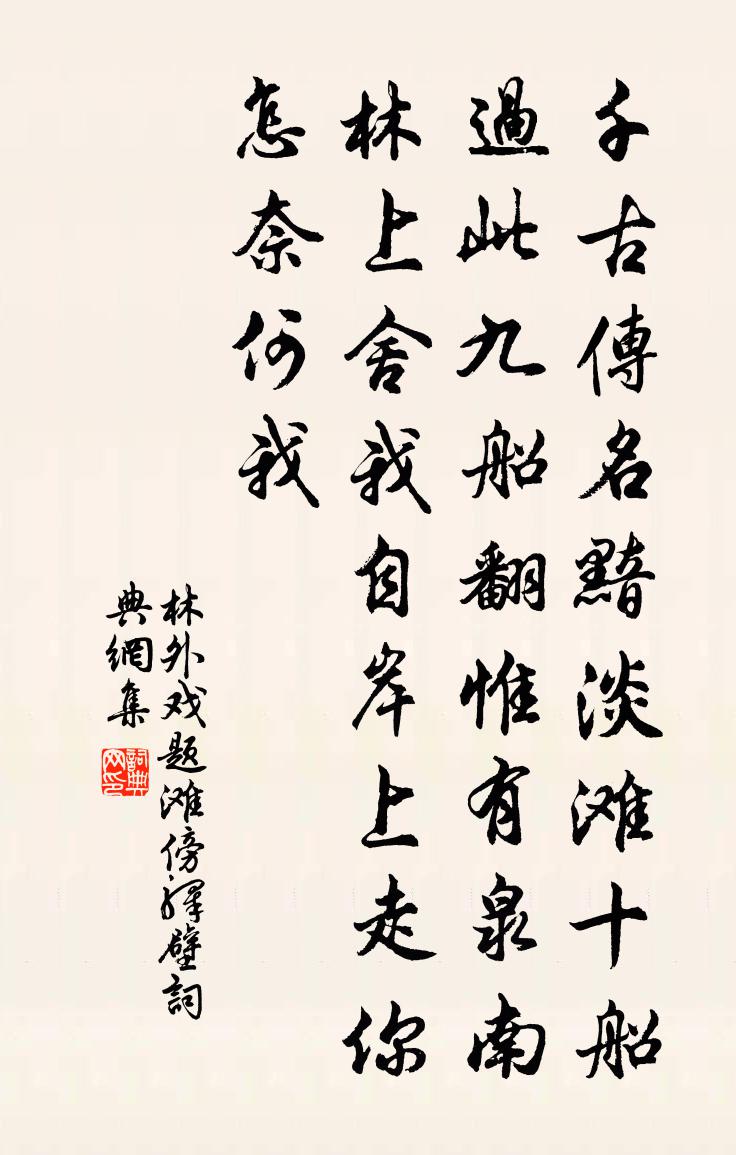 千古傳名黯淡滩十船
過此九船翻惟有泉南
林上舍我自岸上走你
怎奈何我
林外戏题滩傍驛壁詞
典網集
詞典网印